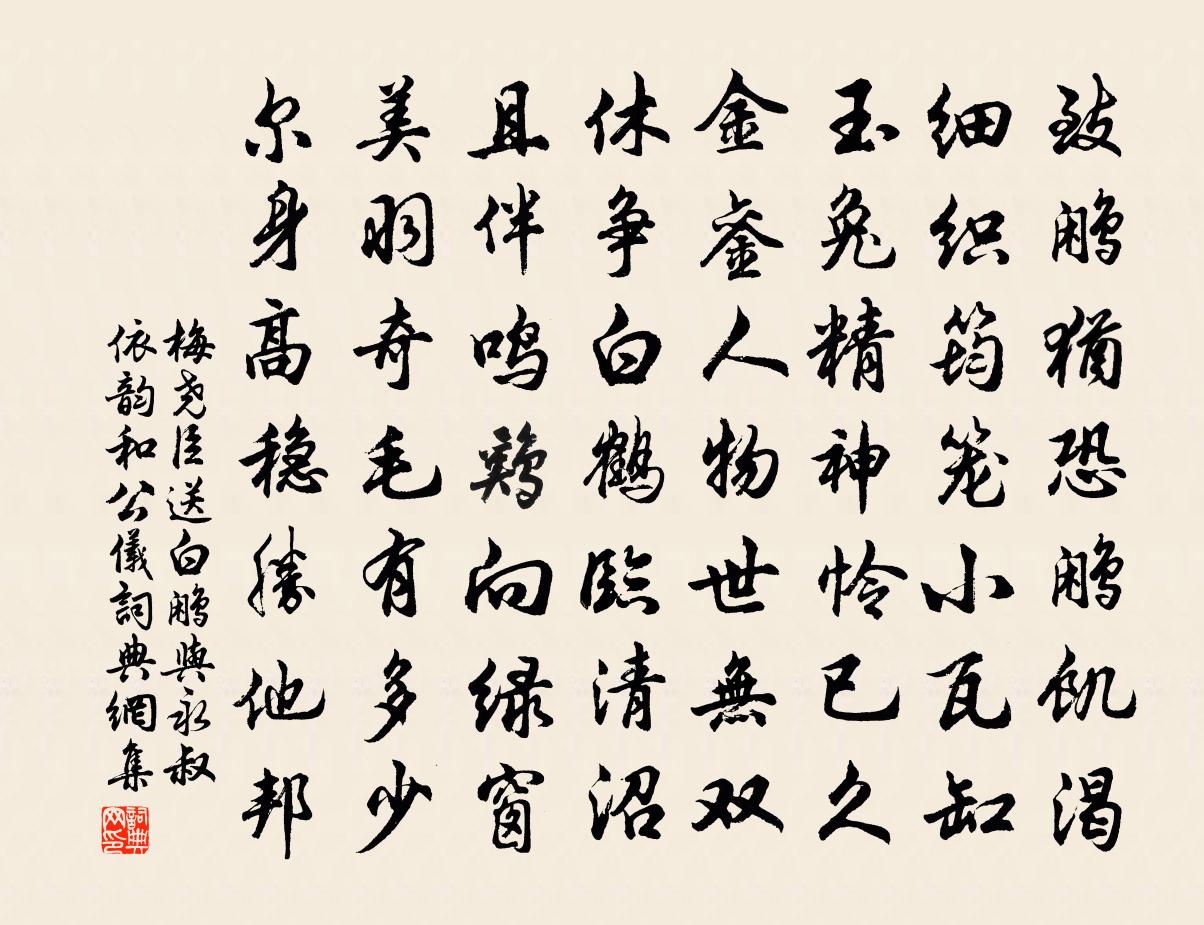 致鹇犹恐鹇飢渴
细织筠笼小瓦缸
玉兔精神怜已久
金銮人物世無双
休争白鹤臨清沼
且伴鸣鷄向绿窗
美羽奇毛有多少
尔身高稳勝他邦
梅尧臣送白鹇與永叔
依韵和公儀詞典網集
詞典网印